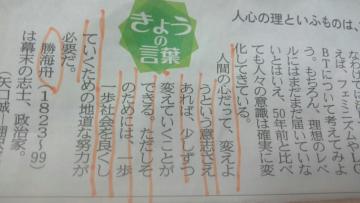 人心の理といふものは、
きょう
の
言葉
えば、フェミニズムやLG
BTについて考えてみよ
う。もちろん、理想のレベ
ルにはまだまだ届いていな
いとはいえ、50年前と比べ
ても人々の意識は確実に変
化してきている。
人間の心だって、変えよ
うという意志さえ
あれば、少しずつ
変えていくことが
できる。ただしそ
のためには、一歩
一歩社会を良くし
ていくための地道な努力が
必要だ。
勝海舟(1823〜99)
は幕末の志士、政治家。